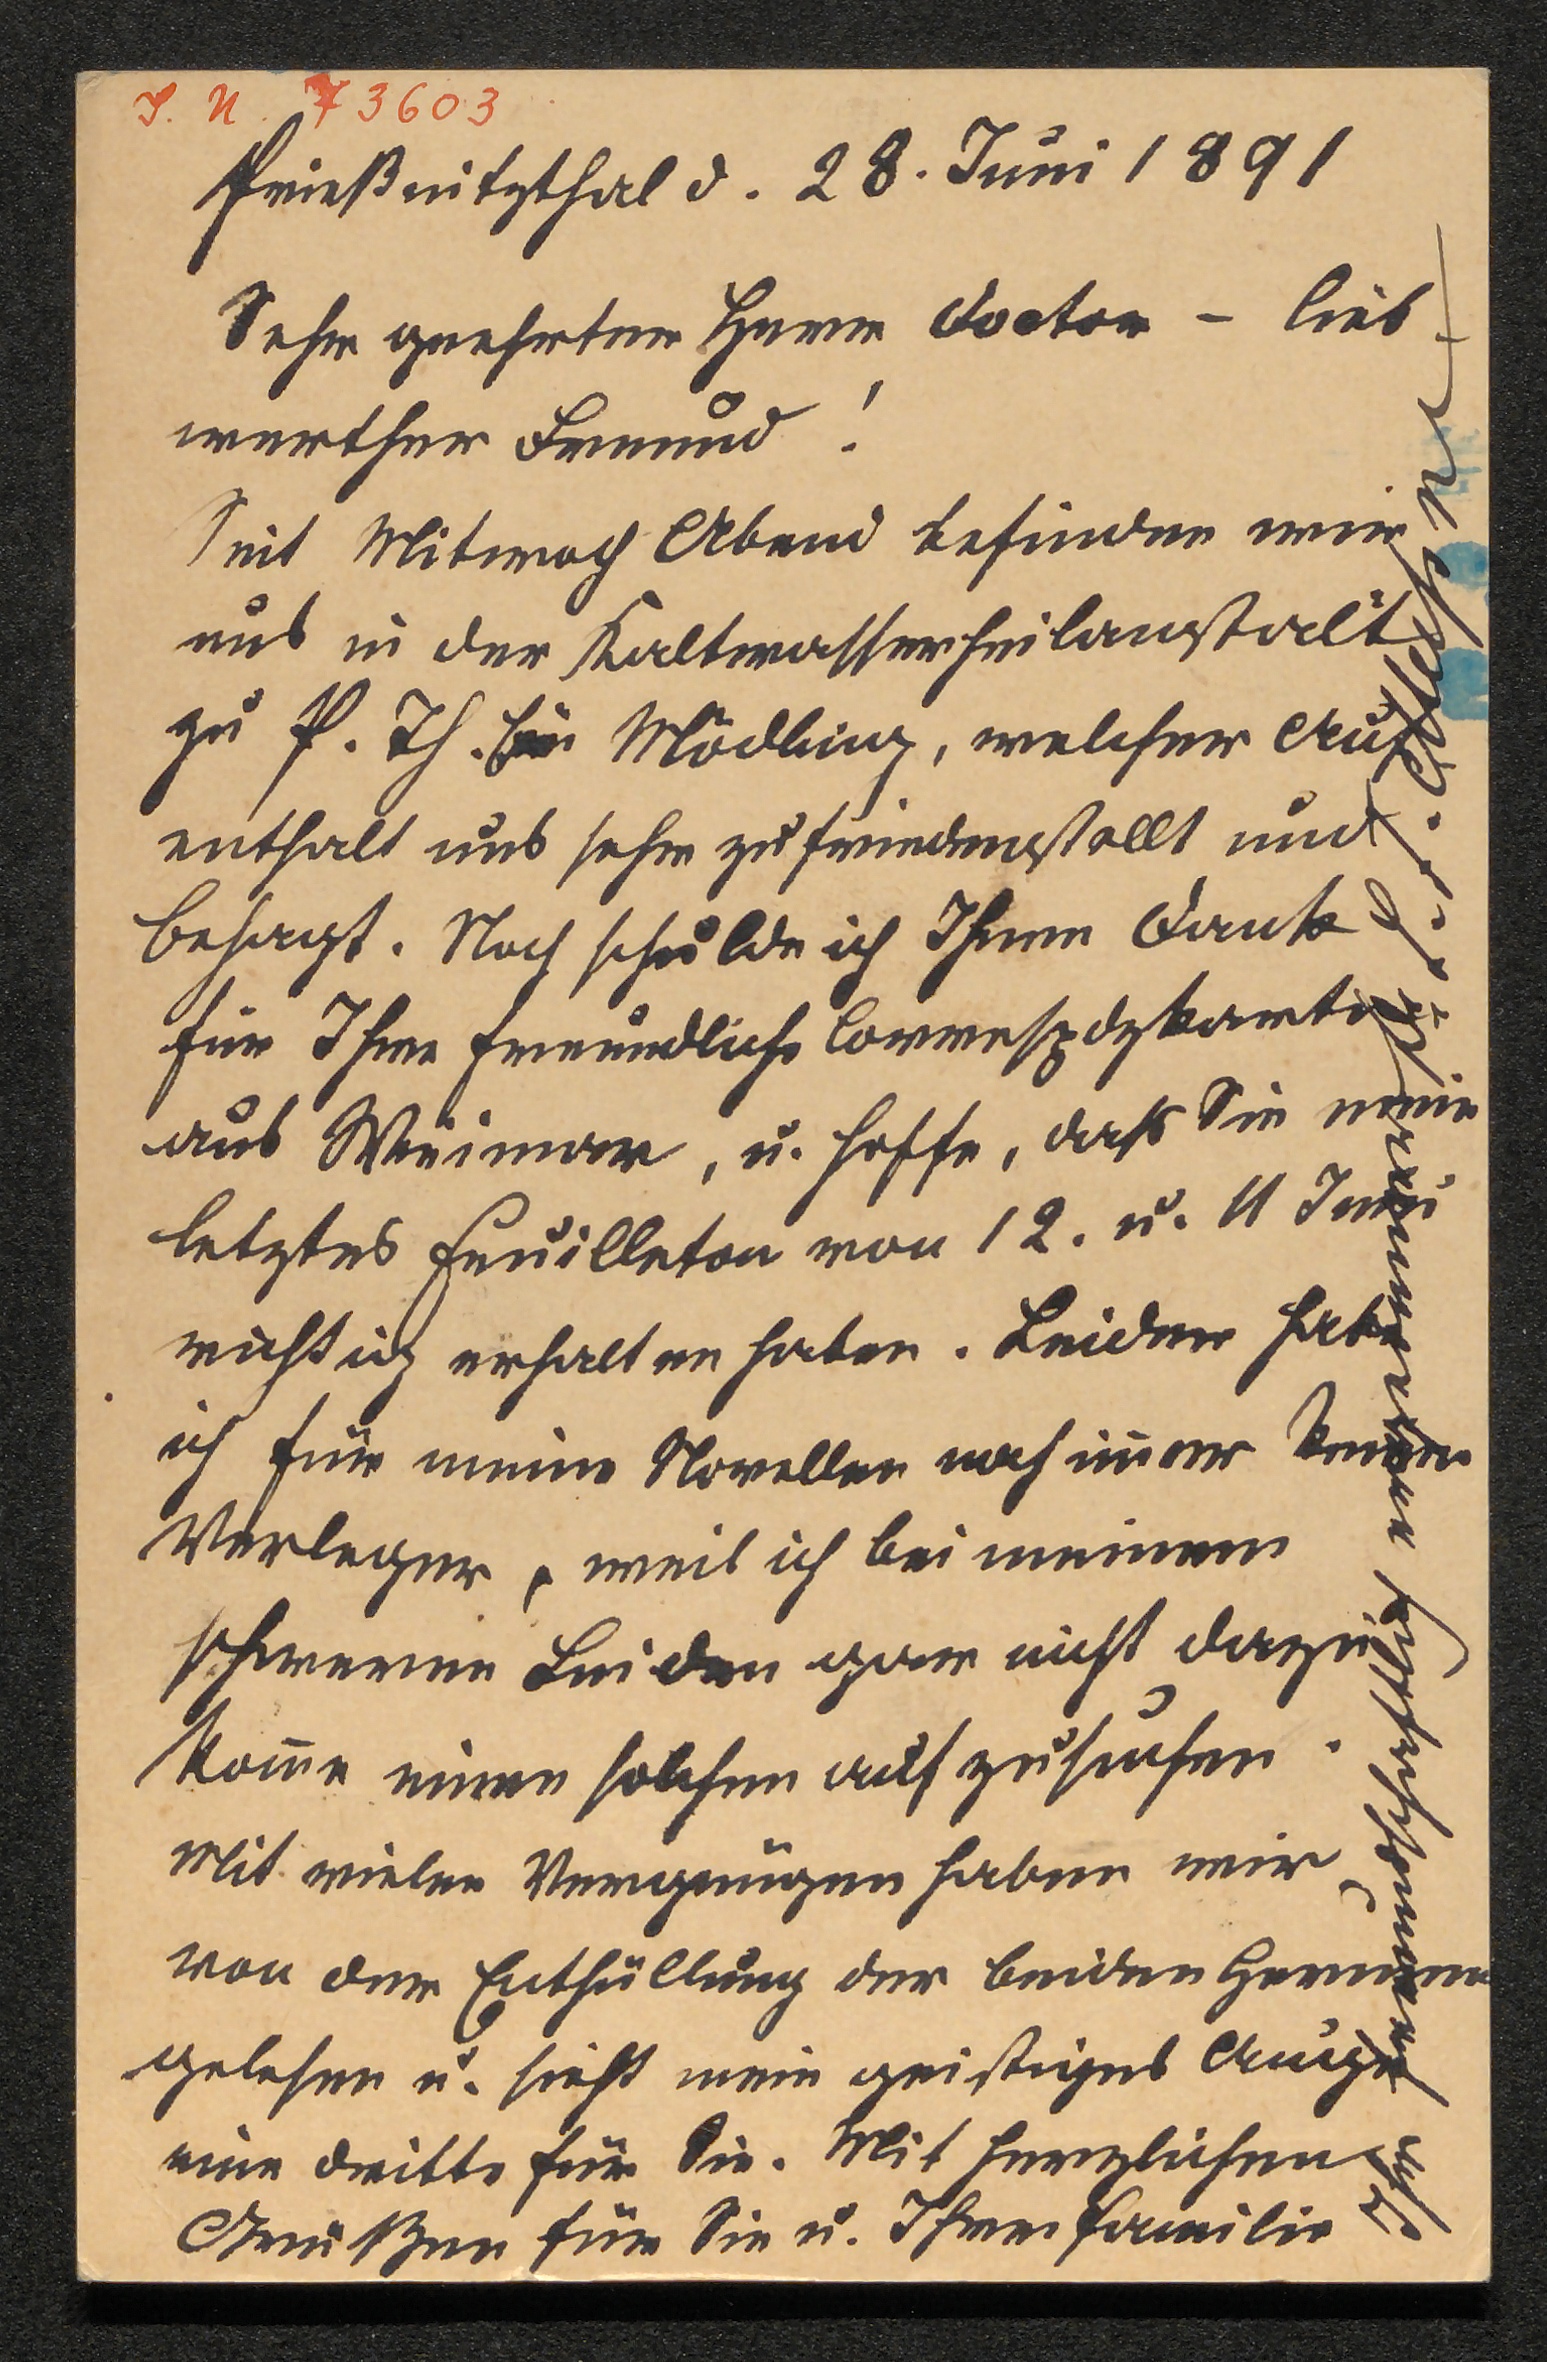 I. N. 73603
Prießnitzthal d. 28. Juni 1891
Sehr geehrter Herr Doctor – lieb
werther Freund!
Seit Mitwoch Abend befinden wir
uns in der Kaltwasserheilanstalt
zu P. Th. bei Mödling, welcher Auf
enthalt uns sehr zufriedenstellt und
behagt. Noch schulde ich Ihnen Dank
für Ihre freundliche Correspdzkarte
aus Weimar, u. hoffe, dass Sie mein
letztes Feuilleton von 12. u. 11 Juni
richtig erhalten haben. Leider habe
ich für meine Novellen noch im̄er keinen
Verleger, weil ich bei meinem
schweren Leiden gar nicht dazu
kom̄e einen solchen aufzusuchen.
Mit vielen Vergnügen haben wir
von der Enthüllung der beiden Hermen
gelesen u. sieht mein geistiges Auge
eine dritte für Sie. Mit herzlichen
Grüßen für Sie u. Ihre Familie
Ihr freundschaftlich